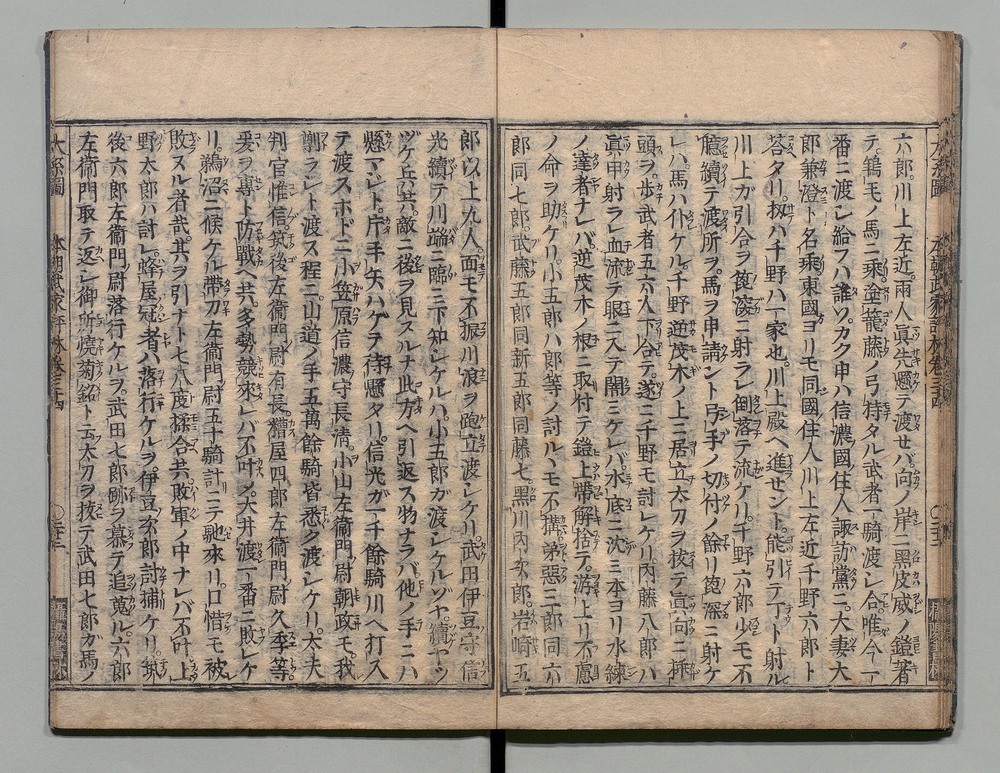 六郎川上左近兩人眞先懸テ渡セバ向ノ岸ニ黒皮威ノ鎧著
テ鴾毛ノ馬ニ乘塗籠藤ノ弓持タル武者一騎渡シ合唯今一
番ニ渡シ給フハ誰ソカク申ハ信濃國住人諏訪黨ニ大妻大
郎兼澄ト名乘東國ヨリモ同國住人川上左近千野六郎ト
荅タリ扨ハ千野ハ一家也川上殿ヘ進セント能引テ丁ト射ル
川上ガ引合ヲ箆深ニ射ラレ倒落テ流ケリ千野六郎少モ不
臆續テ渡所ヲ馬ヲ申請ント弓手ノ切付ノ餘リ箆深ニ射ケ
レハ馬ハ仆ケル千野逆茂木ノ上ニ居立太刀ヲ抜テ眞向ニ
頭ヲ歩武者五六人下合テ遂ニ千野モ討レケリ内藤八郎ハ
眞甲射ラレ血流テ眼ニ入テ闇ミケレバ水底ニ沈ミ本ヨリ水練
ノ達者ナレバ逆茂木ノ根ニ取付テ鎧上帶解捨テ游上リ不慮
ノ命ヲ助ケリ小五郎ハ郎等ノ討ルヽモ不搆弟惡三郎同六
郎同七郎武藤五郎同新五郎同藤七黒川内次郎岩崎五
郎以上九人面モ不振川浪ヲ立渡シケリ武田伊豆守信
光續テ川端ニ臨ミ下知シケルハ小五郎ガ渡シケルソヤ續ヤツ
ツケ兵共敵ニ後ヲ見スルナ此方ヘ引返ス物ナラバ他ノ手ニハ
懸マシト片手矢ハケテ待懸タリ信光ガ一千餘騎川ヘ打入
テ渡スホドニ小笠原信濃守長清小山左衞門尉朝政モ我
劣ラシト渡ス程ニ山道ノ手五萬餘騎皆悉ク渡シケリ太夫
判官惟信筑後左衞門尉有長糟屋四郎左衞門尉久季等
爰ヲ專ト防戰ヘ共多勢競來レバ不叶シテ大井渡一番ニ敗レケ
リ鵜沼ニ候ケル帶刀左衞門尉五十騎計ニテ馳來リ口惜モ被
敗スル者哉其ヲ引ナト七八度揉合共敗軍ノ中ナレバ不叶上
野太郎ハ討レ蜂屋冠者ハ落行ケルヲ伊豆次郎討捕ケリ筑
後六郎左衞門尉落行ケルヲ武田七郎跡ヲ慕テ追蒐ル六郎
左衞門取テ返シ御所燒菊銘ト云太刀ヲ抜テ武田七郎ガ馬ノ